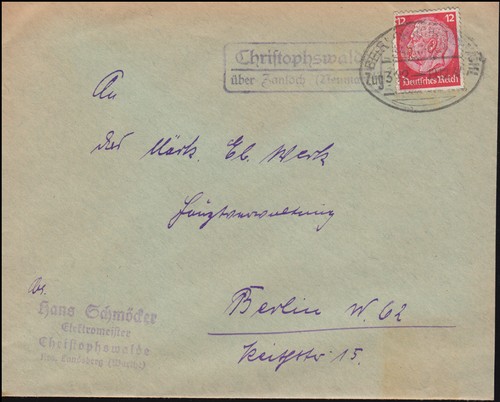 Christophswalde
über Zantoch (Neumark)
12 12
Deutsches Reich
Zug 3
An
das Märk. El. Werk
Hauptverwaltung
Berlin W. 62
Keithstr. 15.
Hans Schmöcker
Elektromeister
Christophswalde
Landsberg (Warthe)